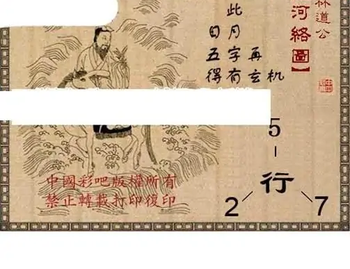 林道公
河絡圖
机
再玄
此月字有
日五得
5
行
2 7
中國彩吧版權所有
禁止轉載打印復印